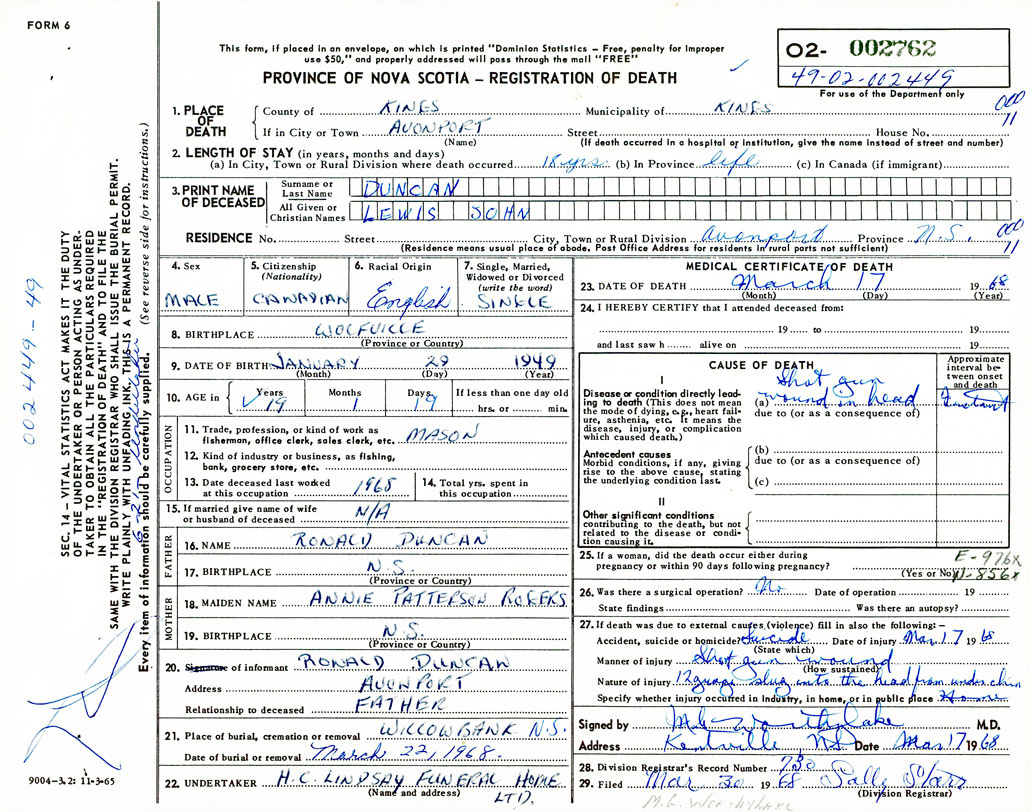 FORM 6
This form, if placed in an envelope, on which is printed "Dominion Statistics – Free, penalty for improper
use $50," and properly addressed will pass through the mail "FREE"
PROVINCE OF NOVA SCOTIA – REGISTRATION OF DEATH
02- 002762
49-02-002449
For use of the Department only
000
11
1. PLACE OF DEATH
County of KINGS Municipality of KINGS
If in City or Town AVONPORT Street House No.
(Name) (If death occurred in a hospital or institution, give the name instead of street and number)
2. LENGTH OF STAY (in years, months and days)
(a) In City, Town or Rural Division where death occurred 18 yrs. (b) In Province life (c) In Canada (if immigrant)
3. PRINT NAME OF DECEASED
Surname or Last Name DUNCAN
All Given or Christian Names LEWIS JOHN
RESIDENCE No. Street City, Town or Rural Division Avonport Province N.S.
(Residence means usual place of abode. Post Office Address for residents in rural parts not sufficient)
000
11
4. Sex MALE
5. Citizenship (Nationality) CANADIAN
6. Racial Origin English
7. Single, Married, Widowed or Divorced (write the word) SINGLE
8. BIRTHPLACE WOLFVILLE
(Province or Country)
9. DATE OF BIRTH JANUARY 29 1949
(Month) (Day) (Year)
10. AGE in Years 19 Months 1 Days 19 If less than one day old
hrs. or min.
OCCUPATION
11. Trade, profession, or kind of work as
fisherman, office clerk, sales clerk, etc. MASON
12. Kind of industry or business, as fishing,
bank, grocery store, etc.
13. Date deceased last worked
at this occupation 1968
14. Total yrs. spent in
this occupation
15. If married give name of wife
or husband of deceased N/A
FATHER
16. NAME RONALD DUNCAN
17. BIRTHPLACE N.S.
(Province or Country)
MOTHER
18. MAIDEN NAME ANNIE PATTERSON ROGERS
19. BIRTHPLACE N.S.
(Province or Country)
20. Signature of informant RONALD DUNCAN
Address AVONPORT
Relationship to deceased FATHER
21. Place of burial, cremation or removal WILLOWBANK N.S.
Date of burial or removal March 22, 1968.
22. UNDERTAKER H.C. LINDSAY FUNERAL HOME
(Name and address) LTD.
MEDICAL CERTIFICATE OF DEATH
23. DATE OF DEATH March 17 19 68
(Month) (Day) (Year)
24. I HEREBY CERTIFY that I attended deceased from:
19 to 19
and last saw h alive on 19
CAUSE OF DEATH
Approximate interval between onset and death
I
Disease or condition directly leading to death (This does not mean the mode of dying, e.g., heart failure, asthenia, etc. It means the disease, injury, or complication which caused death.)
(a) Shot gun wound in head Instant
due to (or as a consequence of)
Antecedent causes
Morbid conditions, if any, giving rise to the above cause, stating the underlying condition last.
(b)
due to (or as a consequence of)
(c)
II
Other significant conditions
contributing to the death, but not related to the disease or condition causing it.
25. If a woman, did the death occur either during
pregnancy or within 90 days following pregnancy?
(Yes or No)
E-976X
N-856X
26. Was there a surgical operation? No Date of operation 19
State findings Was there an autopsy?
27. If death was due to external causes (violence) fill in also the following:-
Accident, suicide or homicide? Suicide Date of injury Mar. 17 19 68
(State which)
Manner of injury Shot gun wound
(How sustained)
Nature of injury 12 guage slug into the head from under chin
Specify whether injury occurred in industry, in home, or in public place Home
Signed by M.D.
Address Kentville, NS Date Mar 17 19 68
28. Division Registrar's Record Number 730
29. Filed Mar 30 19 68 Sally Starr
(Division Registrar)
SEC. 14 – VITAL STATISTICS ACT MAKES IT THE DUTY
OF THE UNDERTAKER OR PERSON ACTING AS UNDER-
TAKER TO OBTAIN ALL THE PARTICULARS REQUIRED
IN THE "REGISTRATION OF DEATH" AND TO FILE THE
SAME WITH THE DIVISION REGISTRAR WHO SHALL ISSUE THE BURIAL PERMIT.
WRITE PLAINLY WITH UNFADING INK. THIS IS A PERMANENT RECORD.
Every item of information should be carefully supplied. (See reverse side for instructions.)
002449-49
9004-3.2: 11-3-65